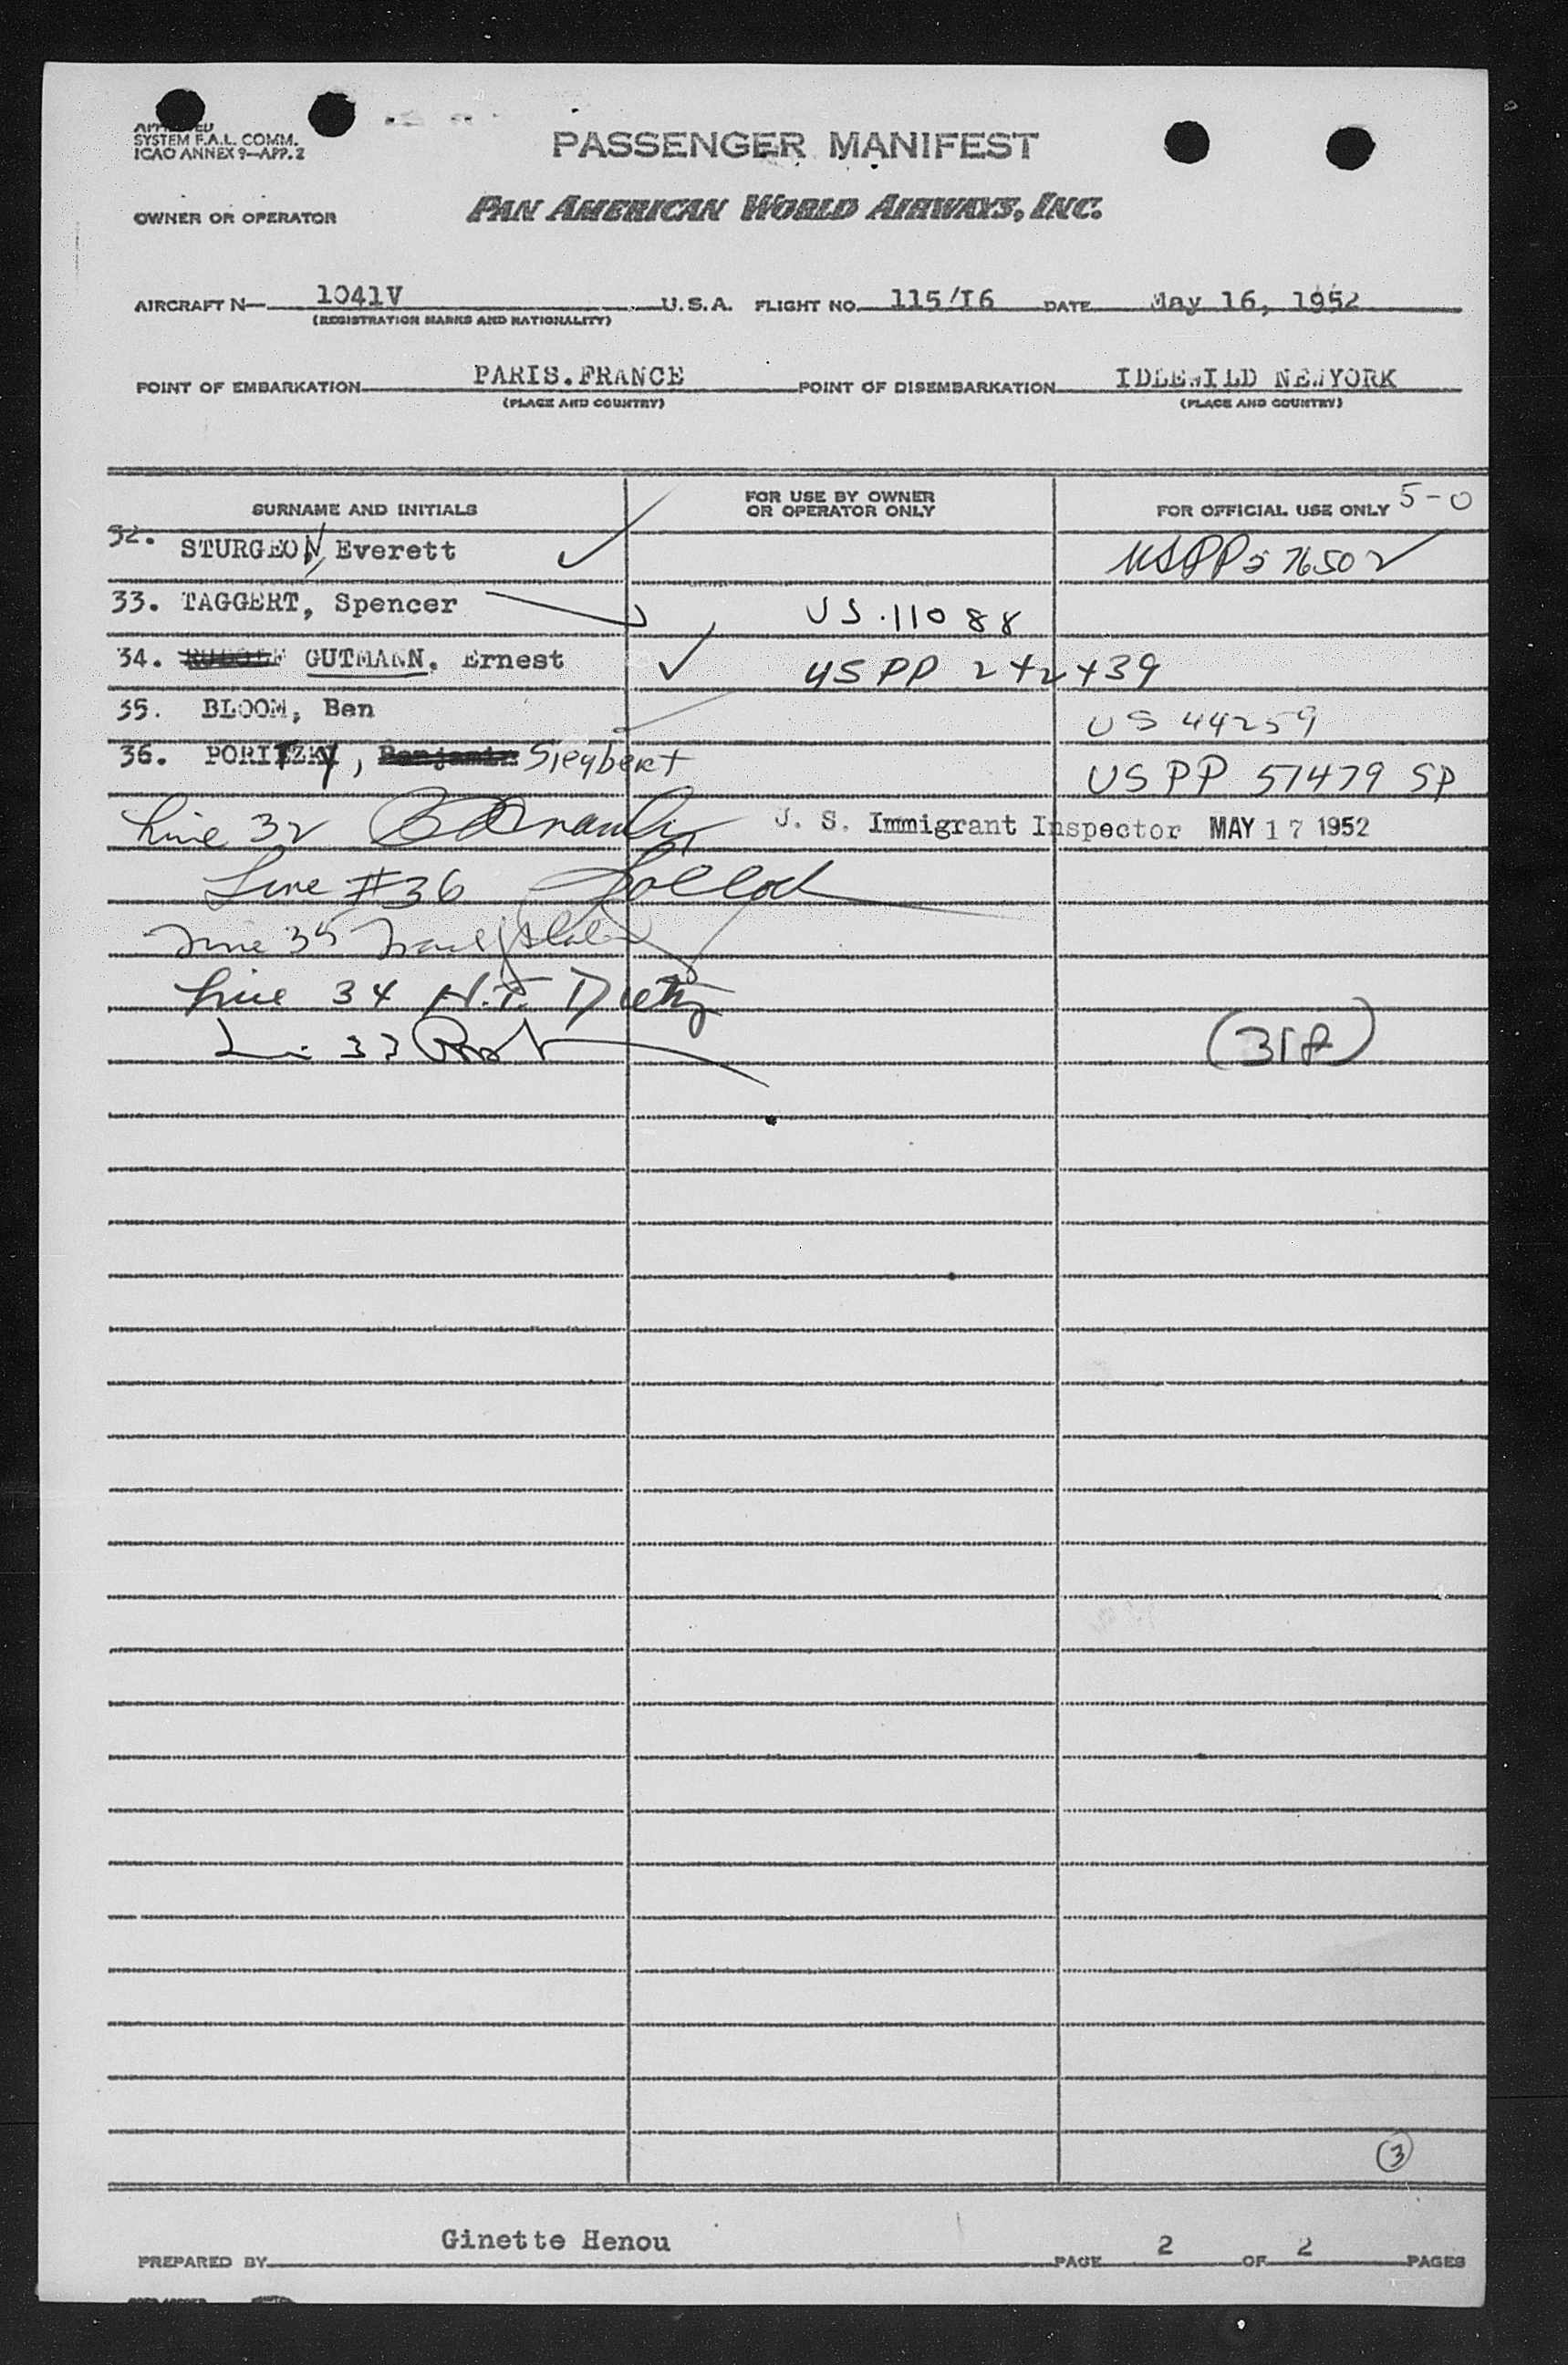 SYSTEM F.A.L. COMM.
ICAO ANNEX 9—APP. 2
PASSENGER MANIFEST
OWNER OR OPERATOR PAN AMERICAN WORLD AIRWAYS, INC.
AIRCRAFT N— 1041V U.S.A. FLIGHT NO. 115/16 DATE May 16, 1952
(REGISTRATION MARKS AND NATIONALITY)
POINT OF EMBARKATION PARIS.FRANCE POINT OF DISEMBARKATION IDLEWILD NEWYORK
(PLACE AND COUNTRY) (PLACE AND COUNTRY)
SURNAME AND INITIALS FOR USE BY OWNER OR OPERATOR ONLY FOR OFFICIAL USE ONLY 5-0
32. STURGEON, Everett USPP 576502
33. TAGGERT, Spencer US.11088
34. GUTMANN, Ernest US PP 242439
35. BLOOM, Ben US 44259
36. PORITZKY, Benjamin Siegbert US PP 51479 SP
Line 32 U. S. Immigrant Inspector MAY 17 1952
Line #36 Pollock
Line 35
Line 34 H.T. Dietz
33
(318)
3
PREPARED BY Ginette Henou PAGE 2 OF 2 PAGES